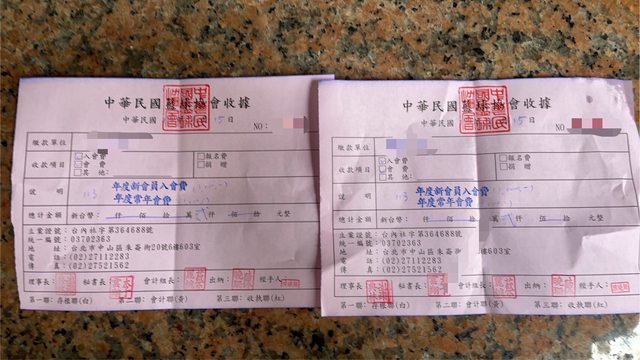 中華民國籃球協會收據
中華民國 15日
NO:
繳款單位
收款項目 入會費 報名費
會費 捐贈
其他:
說明 113 年度新會員入會費
年度常年會費
總計金額 新台幣: 仟 佰 拾 萬 貳 仟 佰 拾 元整
立案證號:台內社字第364688號
統一編號:03702363
地址:台北市中山區朱崙街20號6樓603室
電話:(02)27112283
傳真:(02)27521562
理事長: 秘書長: 會計組長: 出納: 經手人:
第一聯:存根聯(白) 第二聯:會計聯(黃) 第三聯:收執聯(紅)
中華民國籃球協會收據
中華民國 15日
NO:
繳款單位
收款項目 入會費 報名費
會費 捐贈
其他:
說明 113 年度新會員入會費
年度常年會費
總計金額 新台幣: 仟 佰 拾 萬 貳 仟 佰 拾 元整
立案證號:台內社字第364688號
統一編號:03702363
地址:台北市中山區朱崙街 6樓603室
電話:(02)27112283
傳真:(02)27521562
理事長: 秘書長: 會計組長: 出納: 經手人:
第一聯:存根聯(白) 第二聯:會計聯(黃) 第三聯:收執聯(紅)